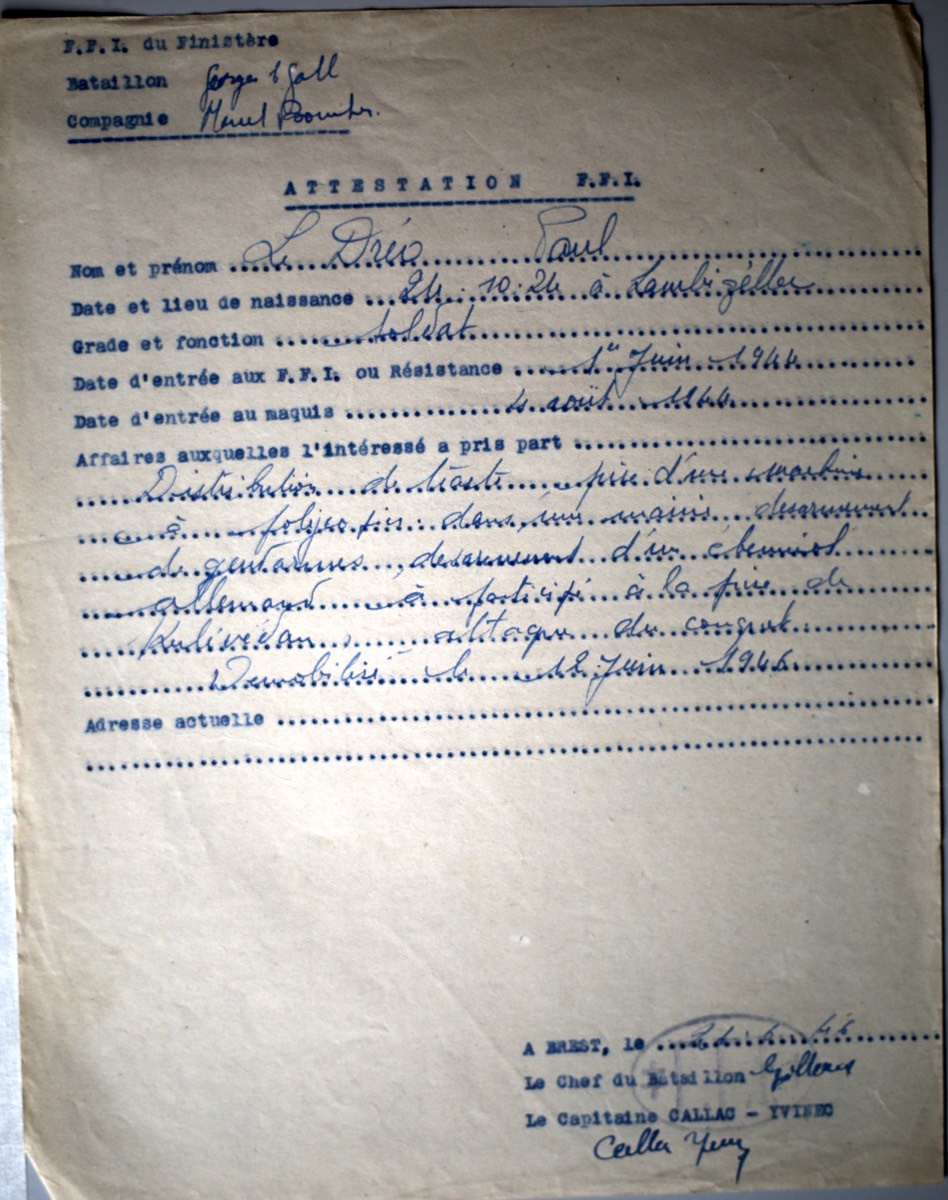 F.F.I. du Finistère
Bataillon Georges le Gall
Compagnie Marcel
ATTESTATION F.F.I.
Nom et prénom Le Dréo Paul
Date et lieu de naissance 24.10.24 à Lambézellec
Grade et fonction soldat
Date d'entrée aux F.F.I. ou Résistance 1er Juin 1944
Date d'entrée au maquis 4 août 1944
Affaires auxquelles l'intéressé a pris part
Distribution de tracts prise d'une machine
à dans une mairie, desarmement
de gendarmes, desarmement d'un
allemand à participé à la prise de
attaque du conquet
Demobilisé le 12 Juin 1946
Adresse actuelle
A BREST, le
Le Chef du Bataillon
Le Capitaine CALLAC - YVINEC